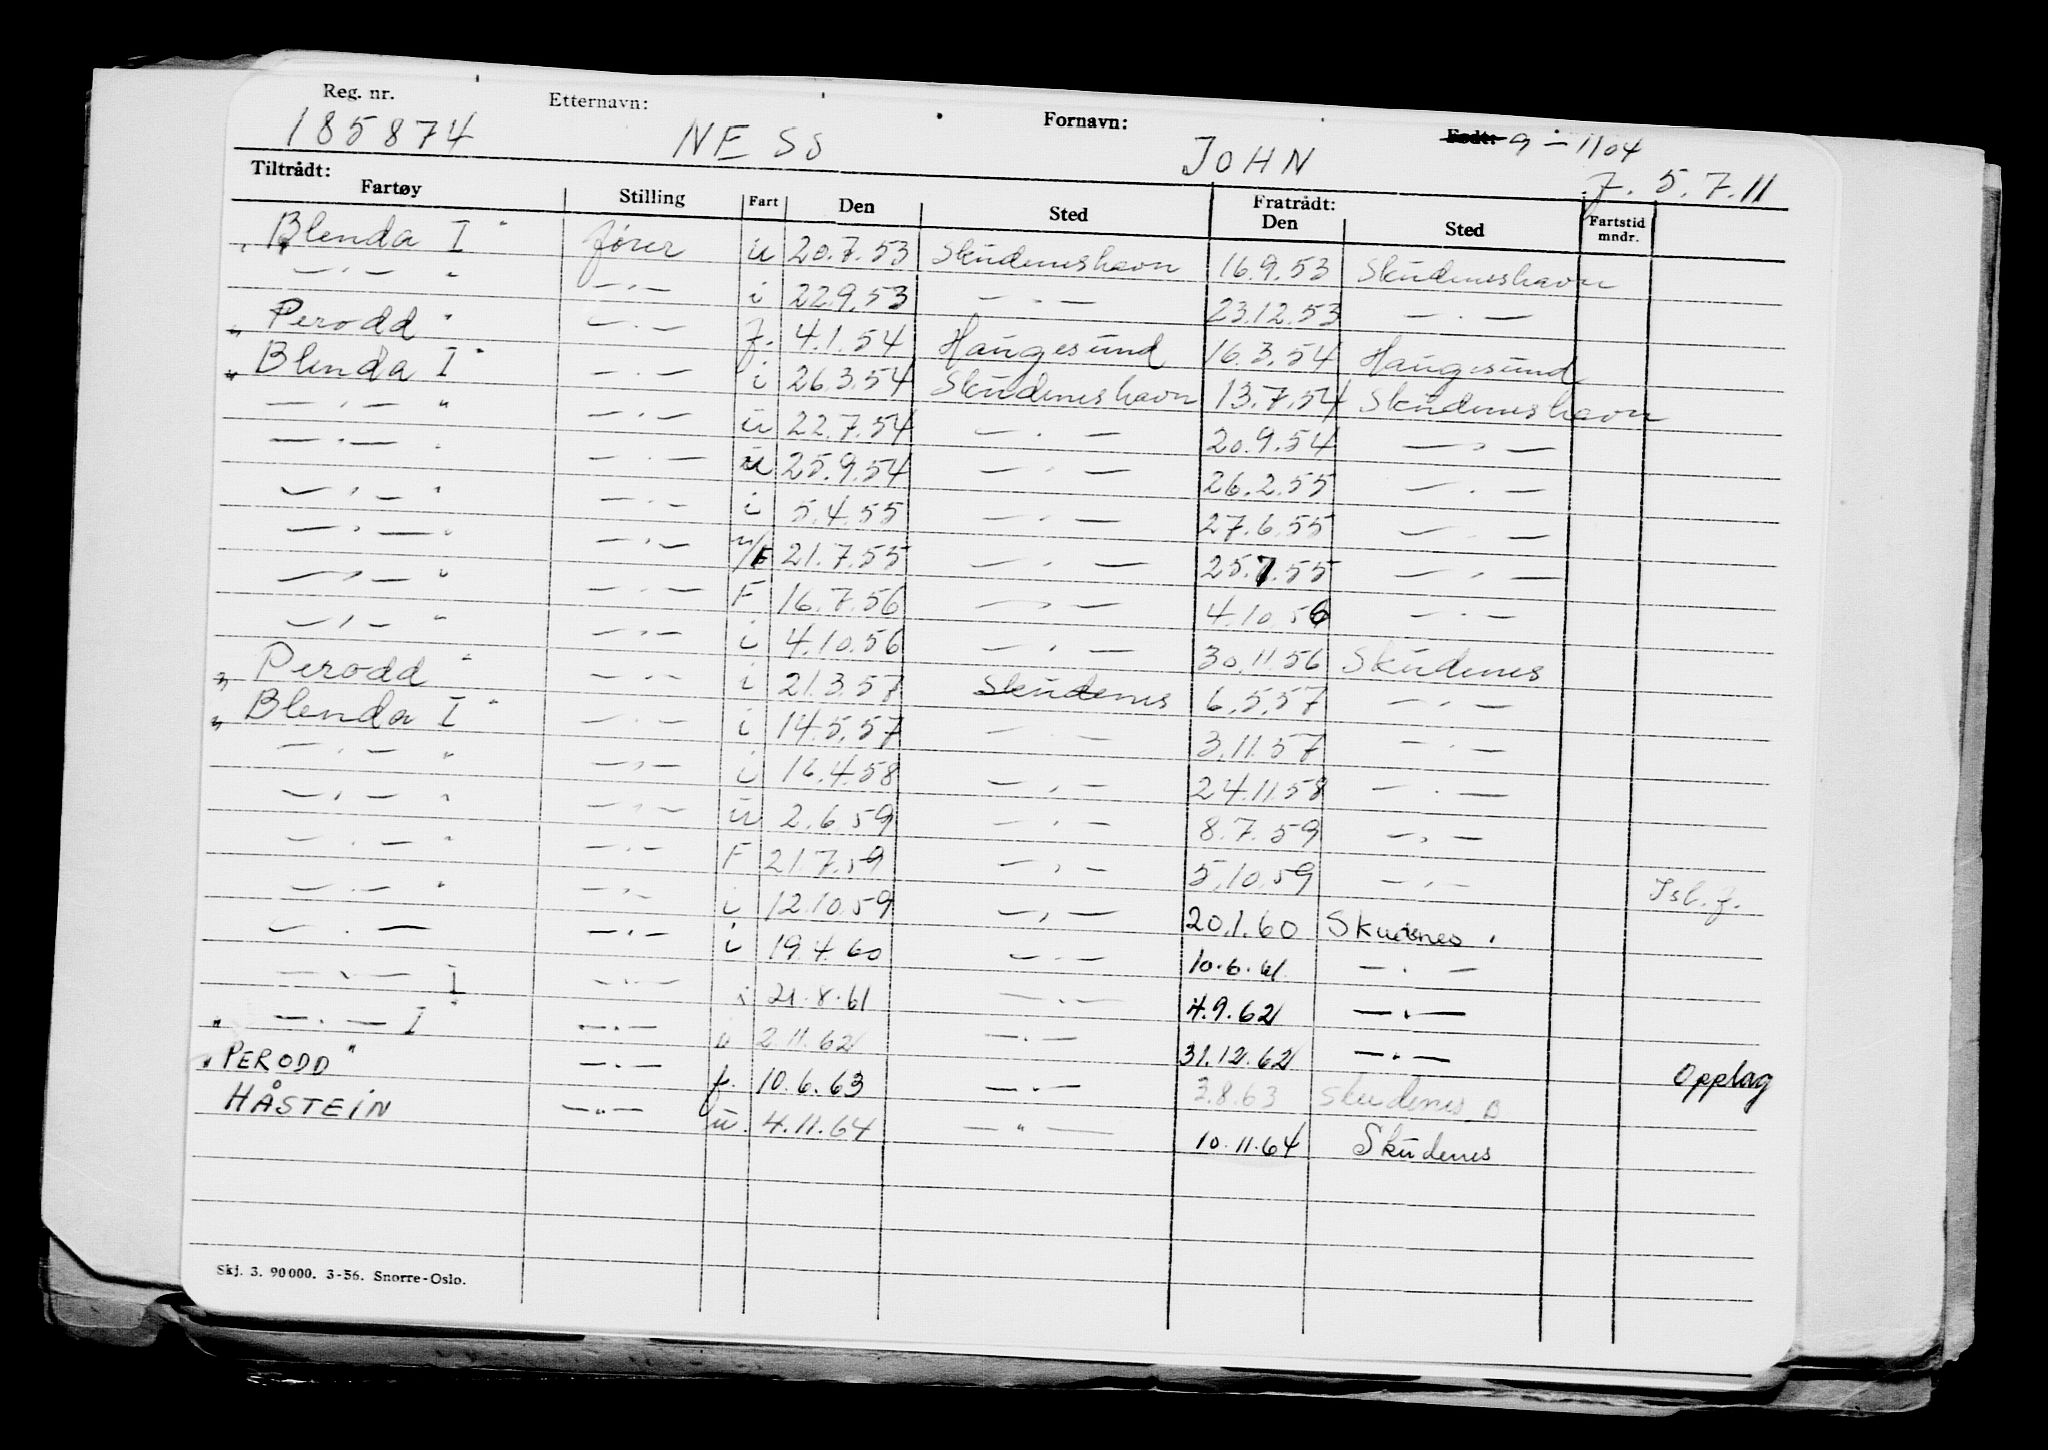 Reg. nr. Etternavn: Fornavn: Født: 9 – 1104
185874 NESS JOHN f. 5.7.11
Tiltrådt: Fratrådt:
Fartøy Stilling Fart Den Sted Den Sted Fartstid mndr.
"Blenda I" fører u 20.7.53 Skudeneshavn 16.9.53 Skudeneshavn
— " — " — " — i 22.9.53 — " — 23.12.53 — " —
"Perodd" — " — f. 4.1.54 Haugesund 16.3.54 Haugesund
"Blenda I" — " — i 26.3.54 Skudeneshavn 13.7.54 Skudeneshavn
— " — " — " — u 22.7.54 — " — 20.9.54 — " —
— " — " — " — u 25.9.54 — " — 26.2.55 — " —
— " — " — " — i 5.4.55 — " — 27.6.55 — " —
— " — " — " — u/F 21.7.55 — " — 25.7.55 — " —
— " — " — " — F 16.7.56 — " — 4.10.56 — " —
— " — " — " — i 4.10.56 — " — 30.11.56 Skudenes
"Perodd" — " — i 21.3.57 Skudenes 6.5.57 — " —
"Blenda I" — " — i 14.5.57 — " — 3.11.57 — " —
— " — " — " — i 16.4.58 — " — 24.11.58 — " —
— " — " — " — u 2.6.59 — " — 8.7.59 — " —
— " — " — " — F 21.7.59 — " — 5.10.59 — " — Isl. f.
— " — " — " — i 12.10.59 — " — 20.1.60 Skudenes.
— " — — " — i 19.4.60 — " — 10.6.61 — " —
— " — I — " — i 21.8.61 — " — 4.9.62 — " —
" — " — I" — " — u 2.11.62 — " — 31.12.62 — " — Opplag
"PERODD" — " — f. 10.6.63 — " — 3.8.63 Skudenes
HÅSTEIN — " — u. 4.11.64 — " — 10.11.64 Skudenes
Skj. 3. 90000. 3-56. Snorre-Oslo.